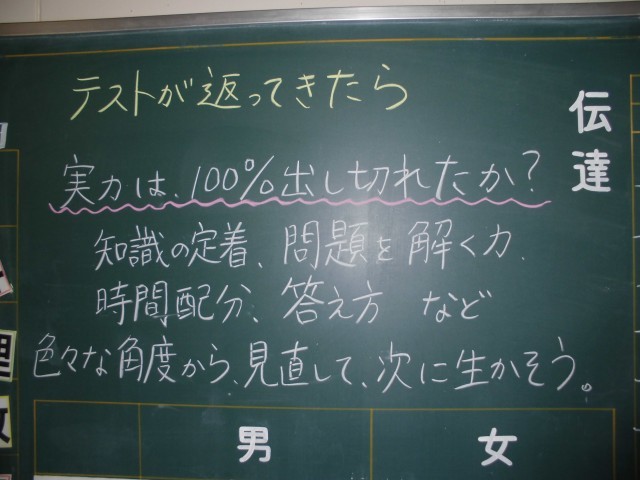 伝達
テストが返ってきたら
実力は、100%出し切れたか?
知識の定着、問題を解く力、
時間配分、答え方 など
色々な角度から、見直して、次に生かそう。
男 女